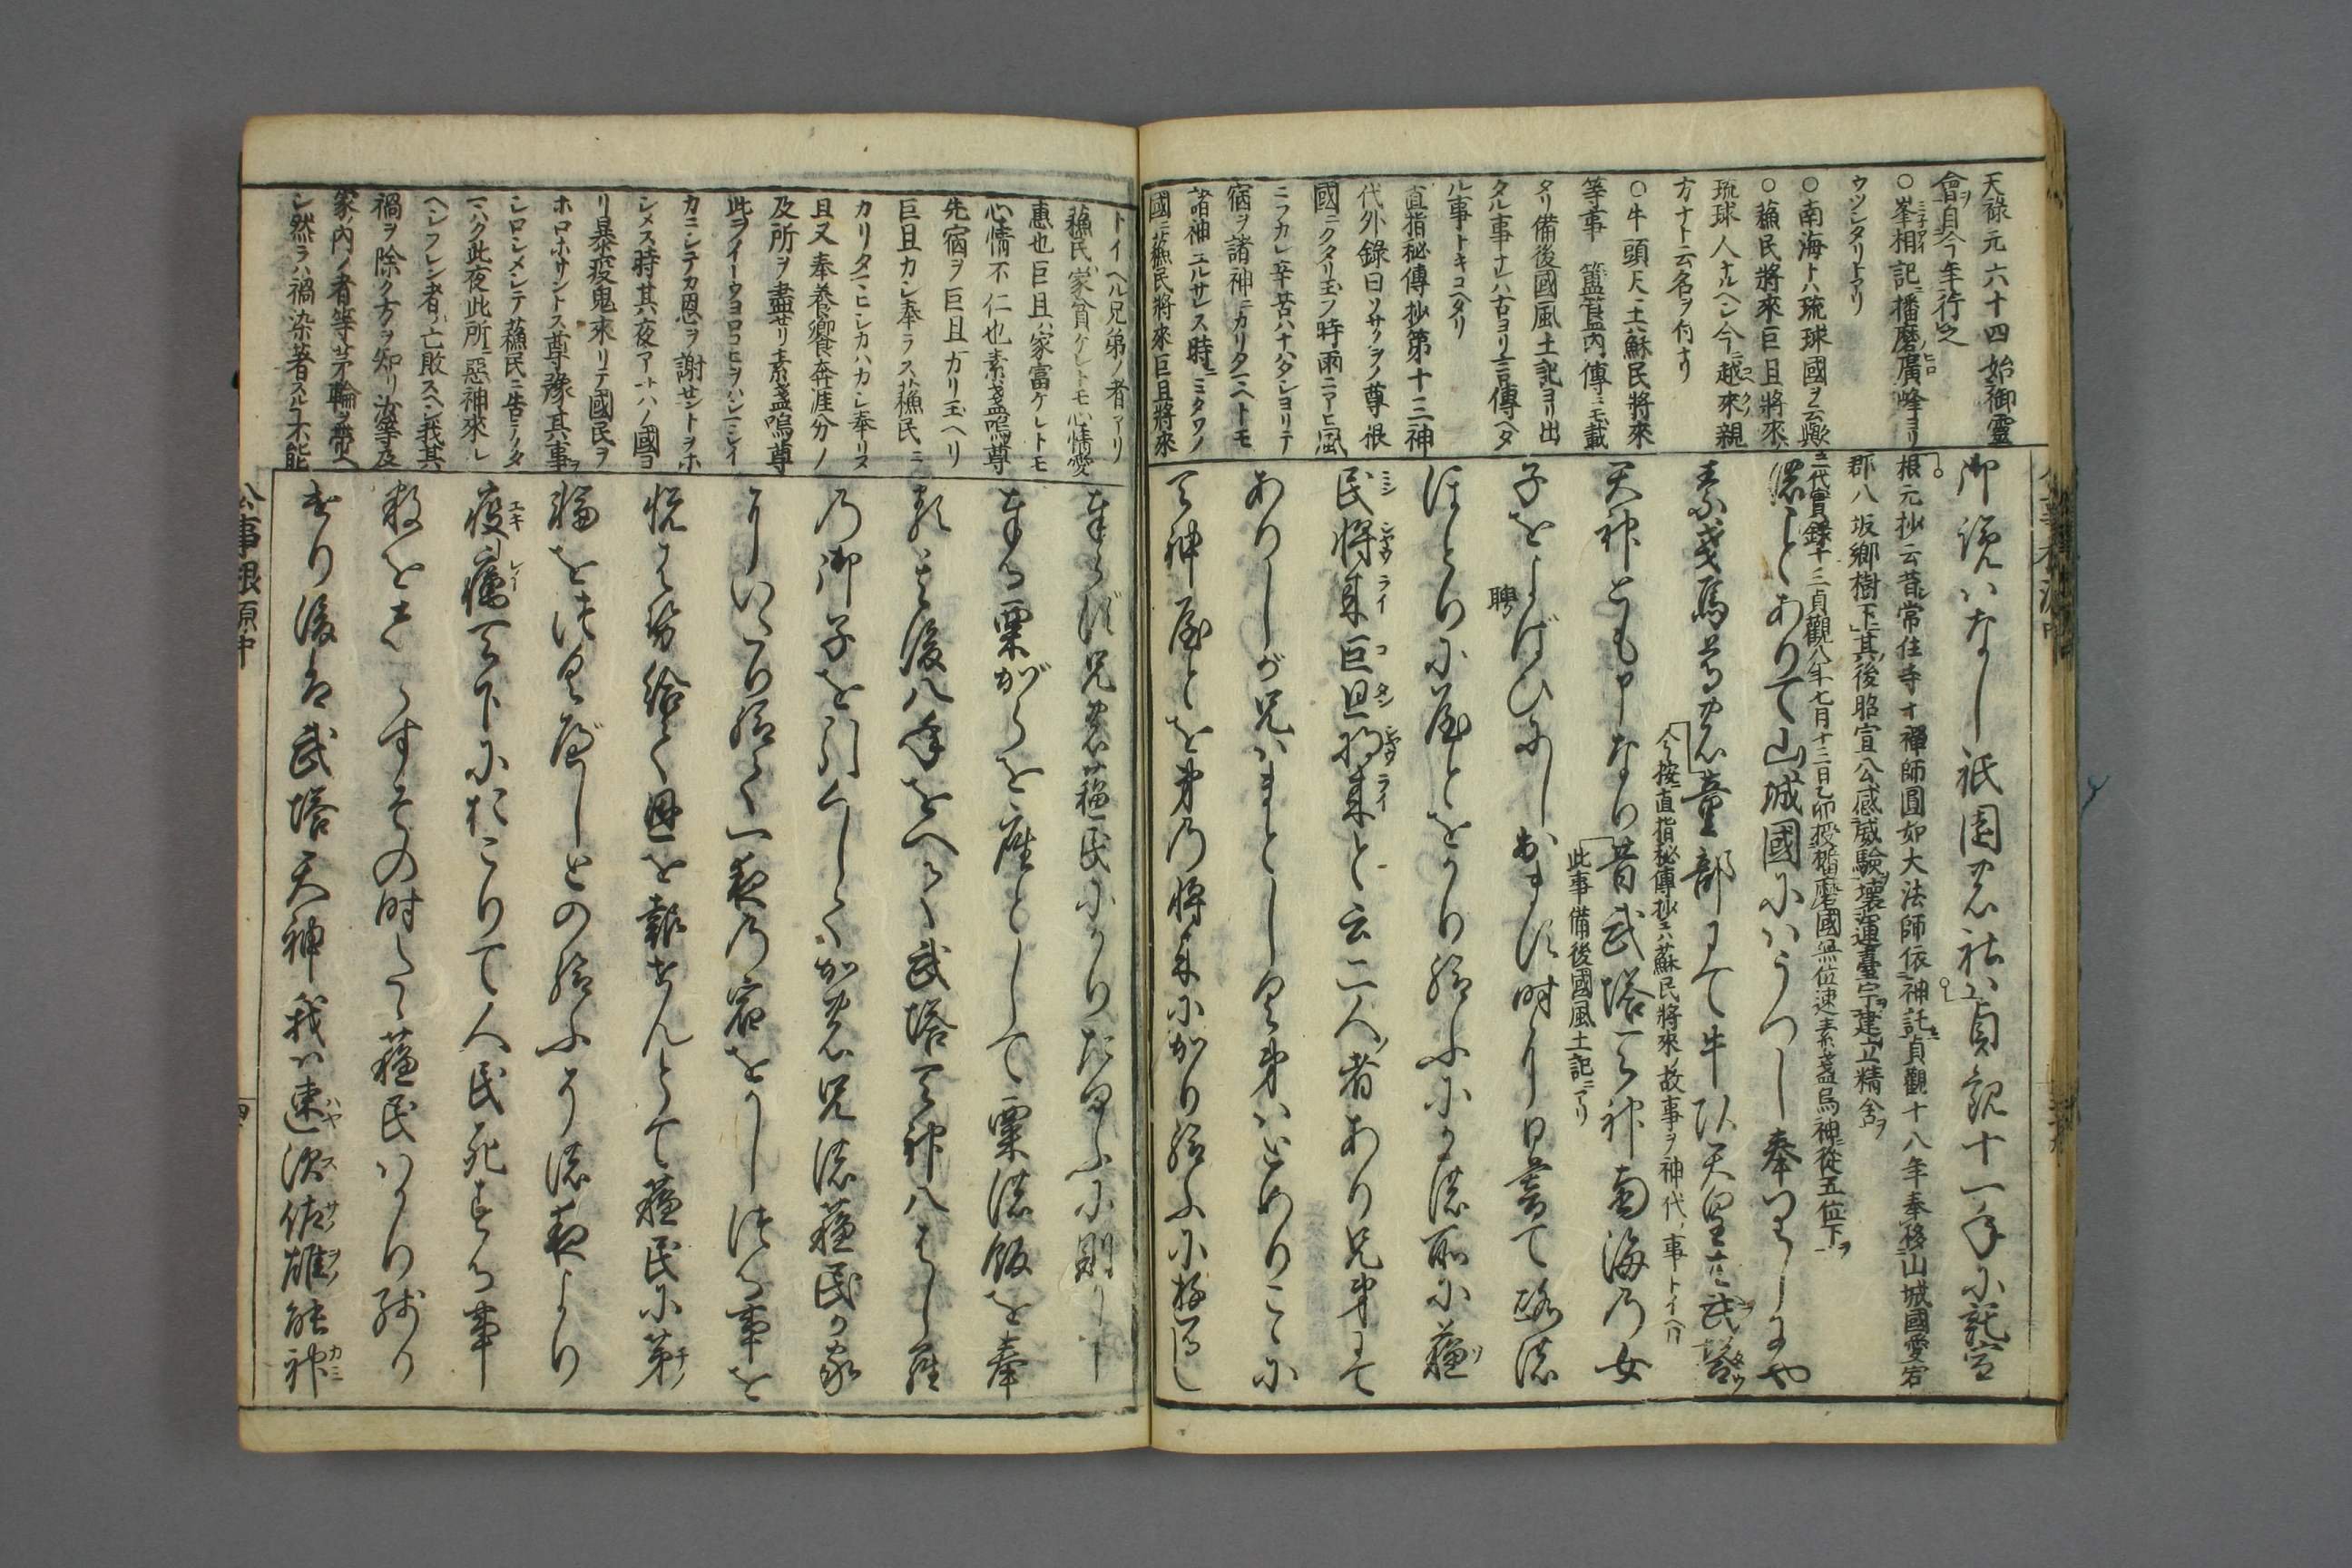 天祿元六十四始御靈
會自今年行之
○峯相記播磨廣峰ヨリ
ウツシタリトアリ
○南海トハ琉球國ヲ云歟
○蘓民將來巨且將來
琉球人ナルヘシ今越來親
方ナト云名ヲ付ナリ
○牛頭天王蘇民將來
等事簠簋内傳ニモ載
タリ備後國風土記ヨリ出
タル事ナレハ古ヨリ言傳ヘタ
ル事トキコヘタリ
直指秘傳抄第十三神
代外錄曰ソサノヲノ尊根
國ニクタリ玉フ時雨ニアヒ風
ニフカレ辛苦ハナハタシヨリテ
宿ヲ諸神ニカリタマヘトモ
諸神ユルサレス時ニミタワノ
國ニ蘓民將來巨且將來
御灵いなし祇園の社ハ貞観十一年に託宣
根元抄云昔常住寺ノ禪師圓如大法師依神託貞觀十八年奉移山城國愛宕
郡八坂鄉樹下其後昭宣公感威驗壞運臺宇建立精舍ヲ
三代實錄十三貞觀八年七月十三日乙卯授播磨國無位速素盞烏神從五位下ヲ
濃ことありて山城國にハうつし奉りしにや
素戔烏尊の童部にて牛頭天皇とも武塔
今按直指秘傳抄ニハ蘇民將來ノ故事ヲ神代ノ事トイヘリ
天神とも申なり昔武塔天神南海乃女
此事備後國風土記ニアリ
子をよばひにおはします時に日暮て路の
聘
ほとりに屋とをかり給ふにかの所に蘓
民將来巨旦將来と云二人ノ者あり兄弟にて
ありしが兄ハまとしく弟ハとめりこゝに
天神屋とを弟乃將来にかり給ふに
トイヘル兄弟ノ者アリ
蘓民ハ家貧ケレトモ心情愛
惠也巨且ハ家富ケレトモ
心情不仁也素盞嗚尊
先宿ヲ巨且ニカリ玉ヘリ
巨且カシ奉ラス蘓民ニ
カリタマヒシカハカシ奉リヌ
且又奉養饗奔涯分ノ
及所ヲ盡セリ素盞嗚尊
此ヲイトウヨロコヒヲハシマシイ
カニシテカ恩ヲ謝セントヲホ
シメス時其夜アナハノ國ヨ
リ暴疫鬼來リテ國民ヲ
ホロホサントス尊豫其事ヲ
シロシメシテ蘓民ニ告テノタ
マハク此夜此所ニ惡神來レ
ヘシフレン者ハ亡敗スヘシ我其
禍ヲ除ク方ヲ知リ汝等及
家ノ内ノ者等茅ノ輪ヲ帶ヘ
シ然ラハ禍染著スルコト不能
奉らず兄の蘓民にかりたまふに則かし
奉る粟がらを座として粟の飯を奉
る其後八年をへて武塔天神八はしら
乃御子を引くしてかの兄の蘓民の家
にいたり給て一夜乃宿をかしつる事を
悦はせ給て恩を報せんとて蘓民に茅
輪をつくべしとの給ふその夜より
疫癘天下におこりて人民死する事
数をしらすその時たゝ蘓民ハかり残り
けり後に武塔天神我ハ速須佐雄能神
公事根源中